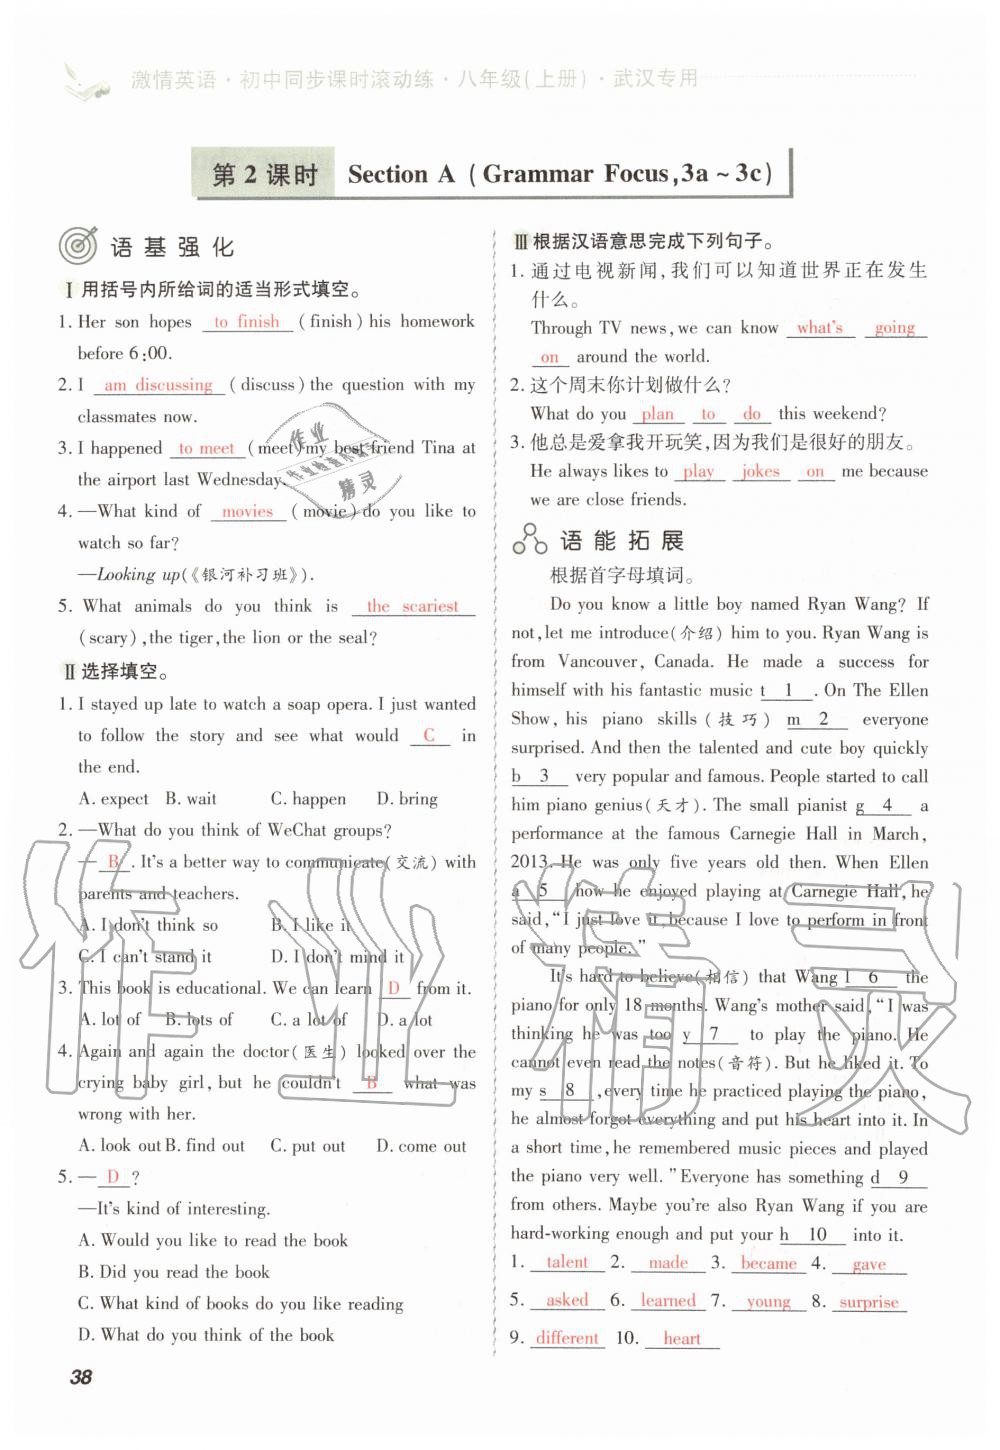 激情英语·初中同步课时滚动练·八年级(上册)·武汉专用
第2课时 Section A (Grammar Focus,3a~3c)
语基强化
Ⅰ 用括号内所给词的适当形式填空。
1. Her son hopes to finish (finish) his homework
before 6:00.
2. I am discussing (discuss) the question with my
classmates now.
3. I happened to meet (meet) my best friend Tina at
the airport last Wednesday.
4. —What kind of movies (movie) do you like to
watch so far?
—Looking up(《银河补习班》).
5. What animals do you think is the scariest
(scary),the tiger,the lion or the seal?
Ⅱ 选择填空。
1. I stayed up late to watch a soap opera. I just wanted
to follow the story and see what would C in
the end.
A. expect B. wait C. happen D. bring
2. —What do you think of WeChat groups?
— B . It's a better way to communicate(交流) with
parents and teachers.
A. I don't think so B. I like it
C. I can't stand it D. I don't mind it
3. This book is educational. We can learn D from it.
A. lot of B. lots of C. a lot of D. a lot
4. Again and again the doctor(医生) looked over the
crying baby girl, but he couldn't B what was
wrong with her.
A. look out B. find out C. put out D. come out
5. — D ?
—It's kind of interesting.
A. Would you like to read the book
B. Did you read the book
C. What kind of books do you like reading
D. What do you think of the book
38
Ⅲ 根据汉语意思完成下列句子。
1. 通过电视新闻,我们可以知道世界正在发生
什么。
Through TV news,we can know what's going
on around the world.
2. 这个周末你计划做什么?
What do you plan to do this weekend?
3. 他总是爱拿我开玩笑,因为我们是很好的朋友。
He always likes to play jokes on me because
we are close friends.
语能拓展
根据首字母填词。
Do you know a little boy named Ryan Wang? If
not,let me introduce(介绍) him to you. Ryan Wang is
from Vancouver, Canada. He made a success for
himself with his fantastic music t 1 . On The Ellen
Show, his piano skills(技巧) m 2 everyone
surprised. And then the talented and cute boy quickly
b 3 very popular and famous. People started to call
him piano genius(天才). The small pianist g 4 a
performance at the famous Carnegie Hall in March,
2013. He was only five years old then. When Ellen
a 5 how he enjoyed playing at Carnegie Hall, he
said,“I just love it,because I love to perform in front
of many people.”
It's hard to believe(相信) that Wang l 6 the
piano for only 18 months. Wang's mother said,“I was
thinking he was too y 7 to play the piano. He
cannot even read the notes(音符). But he liked it. To
my s 8 ,every time he practiced playing the piano,
he almost forgot everything and put his heart into it. In
a short time, he remembered music pieces and played
the piano very well.”Everyone has something d 9
from others. Maybe you're also Ryan Wang if you are
hard-working enough and put your h 10 into it.
1. talent 2. made 3. became 4. gave
5. asked 6. learned 7. young 8. surprise
9. different 10. heart
作业
作业检查小助手
精灵
作业精灵